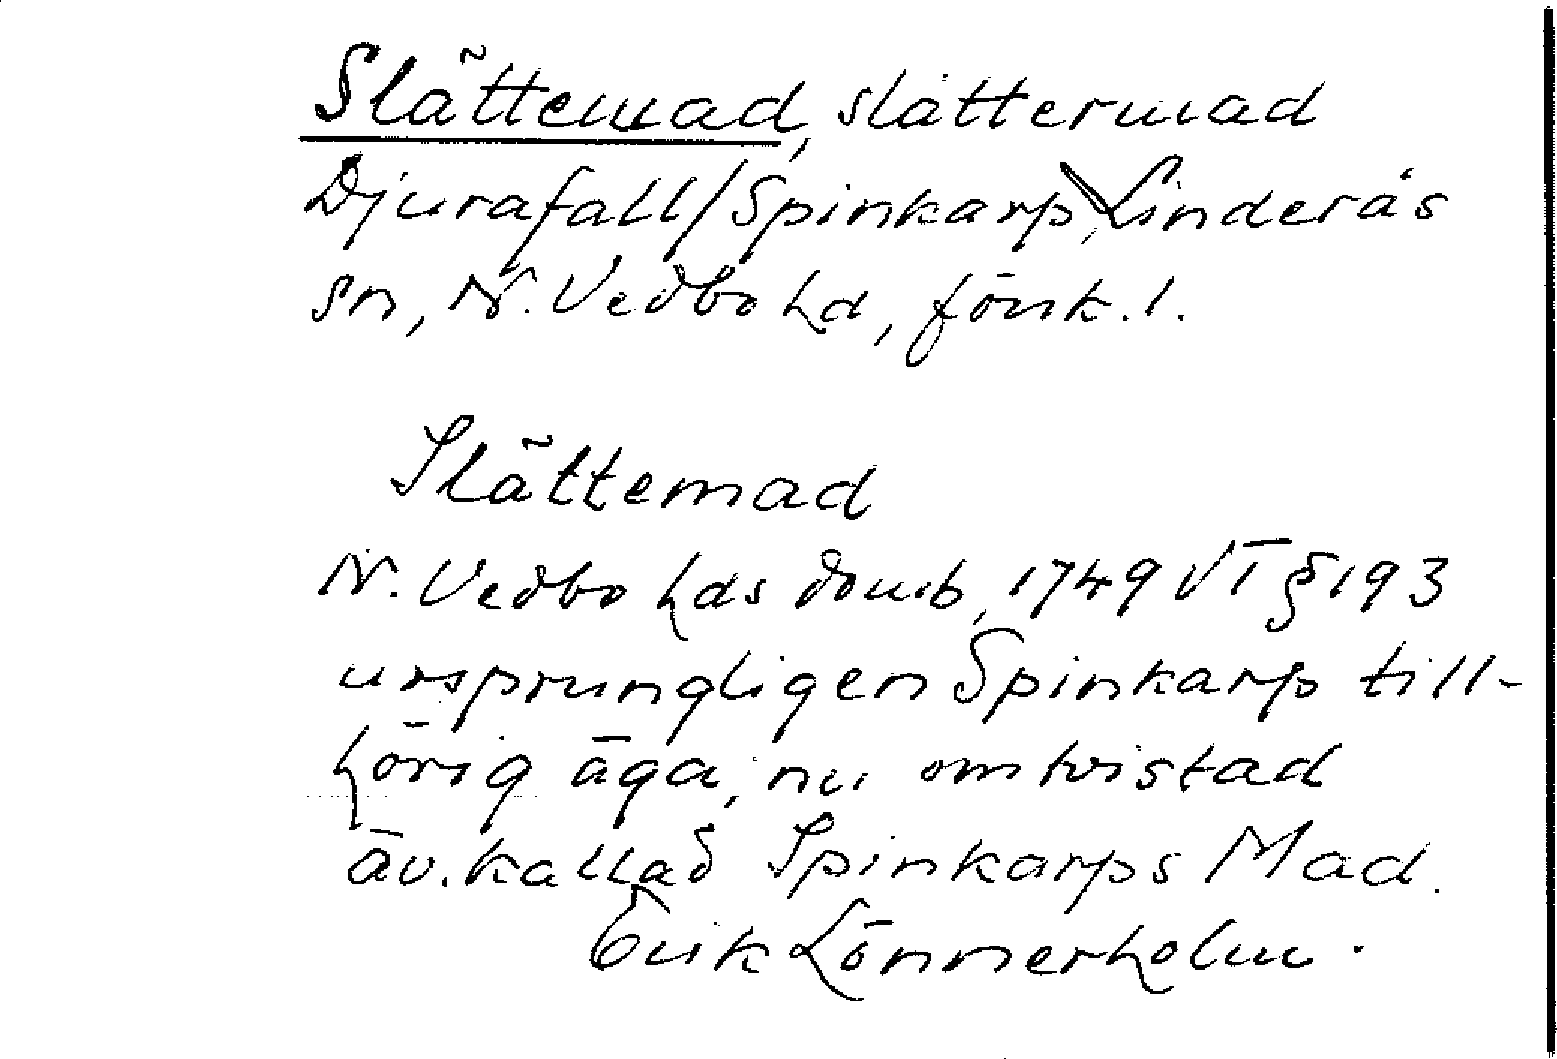 Slättemad, slåttermad
Djurafall/Spinkarp, Linderås
sn, N. Vedbo hd, Jönk. l.
Slättemad
N. Vedbo hds domb, 1749 VT § 193
ursprungligen Spinkarp till-
hörig äga, nu omtvistad
äv. kallad Spinkarps Mad.
Erik Lönnerholm.